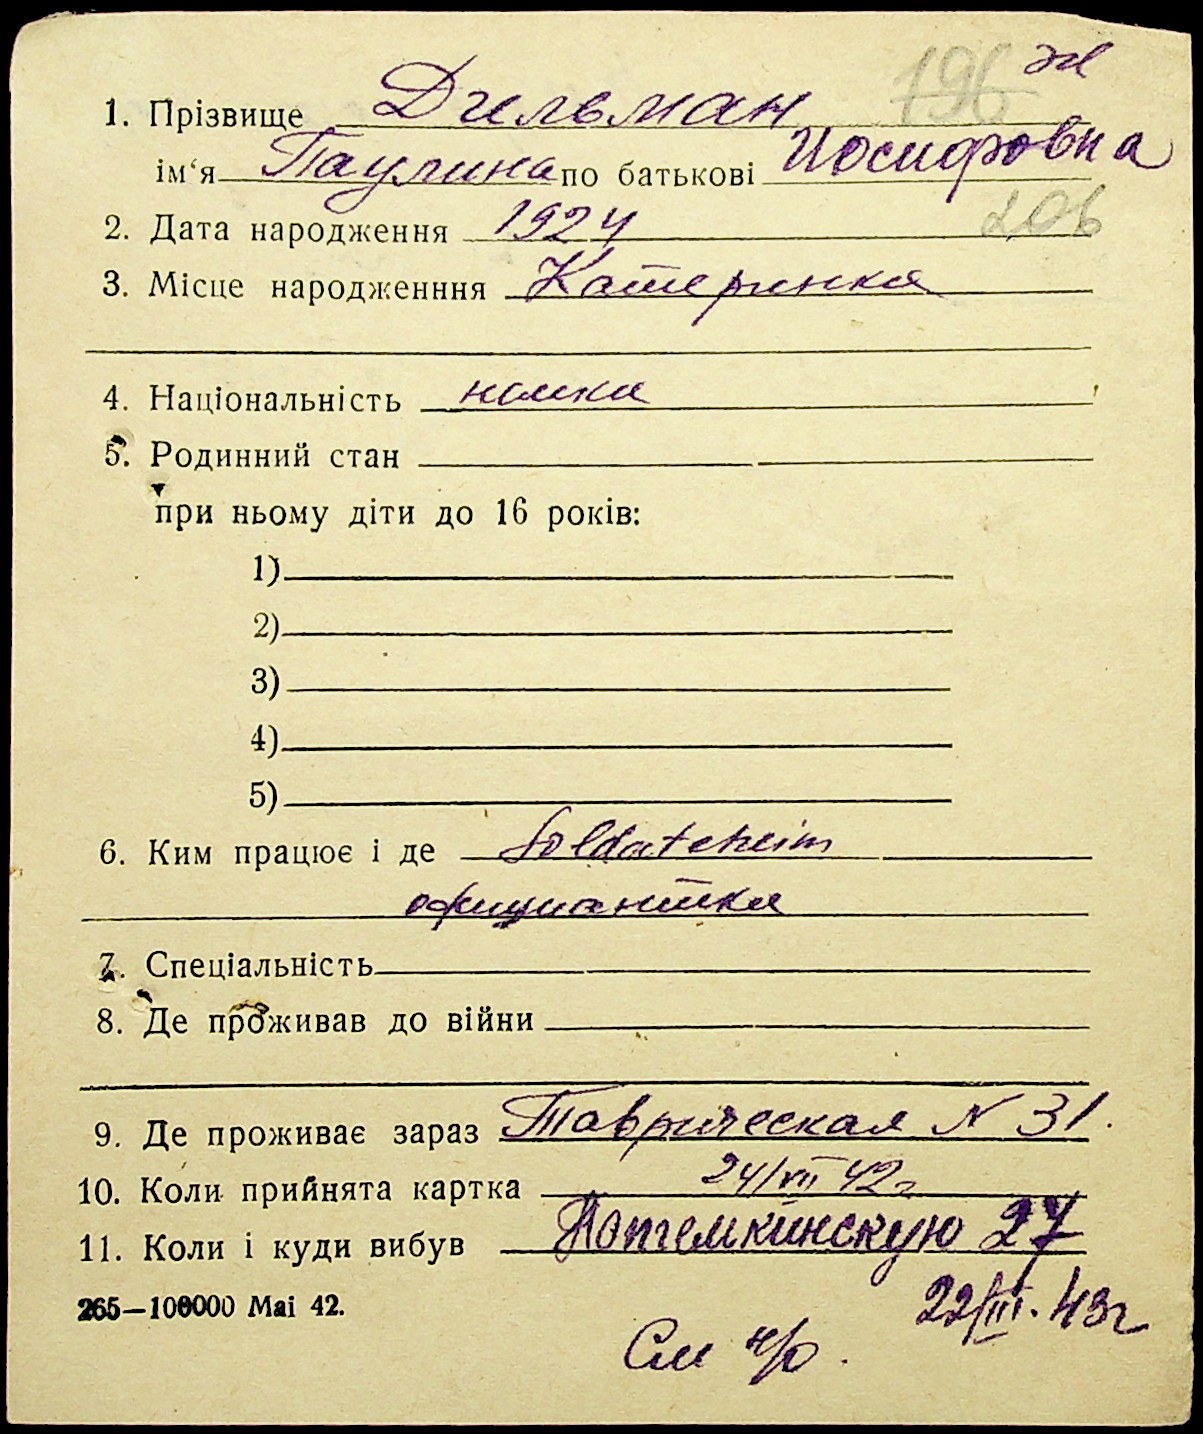 196
1. Прізвище Дильман
ім‘я Паулина по батькові Иосифовна
2. Дата народження 1924
206
3. Місце народженння Катеринка
4. Національність немка
5. Родинний стан
при ньому діти до 16 років:
1)
2)
3)
4)
5)
6. Ким працює і де Soldateheim
официантка
7. Спеціальність
8. Де проживав до війни
9. Де проживає зараз Таврическая N 31.
10. Коли прийнята картка 24/VII 42г
11. Коли і куди вибув Потемкинскую 27
265—100000 Маі 42.
22/III. 43г
См н/о.